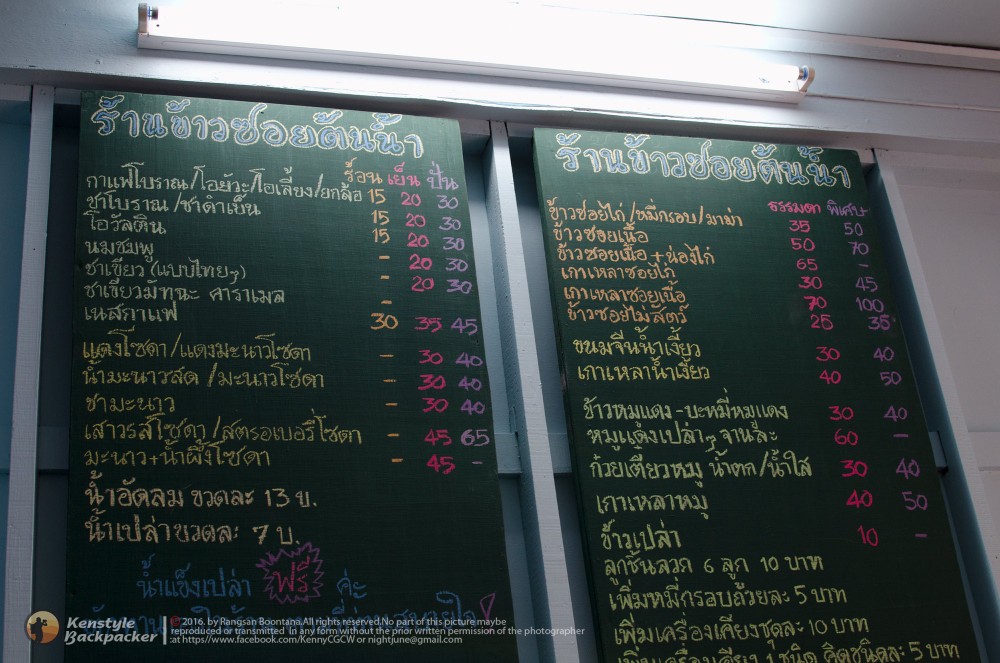 ร้านข้าวซอยต้นน้ำ
ร้อน เย็น ปั่น
กาแฟโบราณ/โอยัวะ/โอเลี้ยง/ยกล้อ 15 20 30
ชาโบราณ/ชาดำเย็น 15 20 30
โอวัลติน 15 20 30
นมชมพู - 20 30
ชาเขียว (แบบไทยๆ) - 20 30
ชาเขียวมัทฉะ คาราเมล -
เนสกาแฟ 30 35 45
แดงโซดา/แดงมะนาวโซดา - 30 40
น้ำมะนาวสด/มะนาวโซดา - 30 40
ชามะนาว - 30 40
เสาวรสโซดา/สตรอเบอรี่โซดา - 45 65
มะนาว+น้ำผึ้งโซดา - 45 -
น้ำอัดลม ขวดละ 13 บ.
น้ำเปล่าขวดละ 7 บ.
น้ำแข็งเปล่า ฟรี ค่ะ
ร้านข้าวซอยต้นน้ำ
ธรรมดา พิเศษ
ข้าวซอยไก่/หมี่กรอบ/มาม่า 35 50
ข้าวซอยเนื้อ 50 70
ข้าวซอยเนื้อ+น่องไก่ 65 -
เกาเหลาซอยไก่ 30 45
เกาเหลาซอยเนื้อ 70 100
ข้าวซอยไม่สัตว์ 25 35
ขนมจีนน้ำเงี้ยว 30 40
เกาเหลาน้ำเงี้ยว 40 50
ข้าวหมูแดง-บะหมี่หมูแดง 30 40
หมูแดงเปล่าๆ จานละ 60 -
ก๋วยเตี๋ยวหมู น้ำตก/น้ำใส 30 40
เกาเหลาหมู 40 50
ข้าวเปล่า 10 -
ลูกชิ้นลวก 6 ลูก 10 บาท
เพิ่มหมี่กรอบถ้วยละ 5 บาท
เพิ่มเครื่องเคียงชุดละ 10 บาท
Kenstyle
Backpacker
2016. by Rangsan Boontana.All rights reserved.No part of this picture maybe
reproduced or transmitted in any form without the prior written permission of the photographer
at https://www.facebook.com/KennyCGCW or nightjune@gmail.com